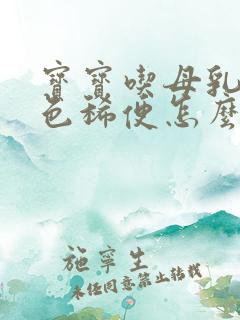 寶寶喫母乳
色稀便怎麼
施寧生
未經同意禁止轉載